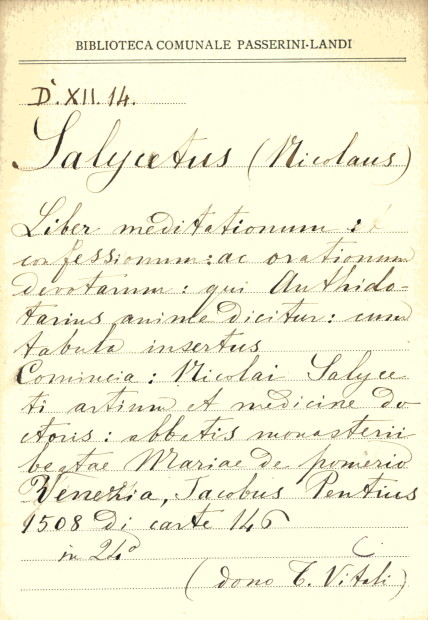 BIBLIOTECA COMUNALE PASSERINI-LANDI
D'. XII. 14.
Salycetus (Nicolaus)
Liber meditationum :
confessionum : ac orationum
devotarum : qui Anthido-
tarius anime dicitur : cum
tabula insertus
Comincia : Nicolai Salyce
ti artium et medicine do
ctoris : abbatis monasterii
beatae Mariae de pomerio
Venezia, Jacobus Pentius
1508 di carte 146
in 24°
(dono T. Vitali)